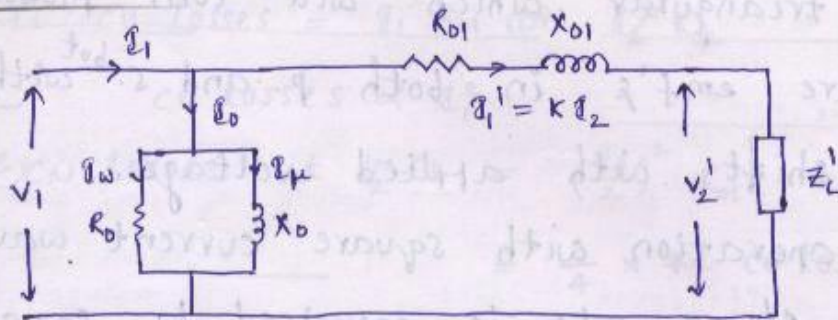 I₁
R₀₁
X₀₁
I₀
I₁' = K I₂
V₁
I_w
I_μ
R₀
X₀
V₂'
Z_L'